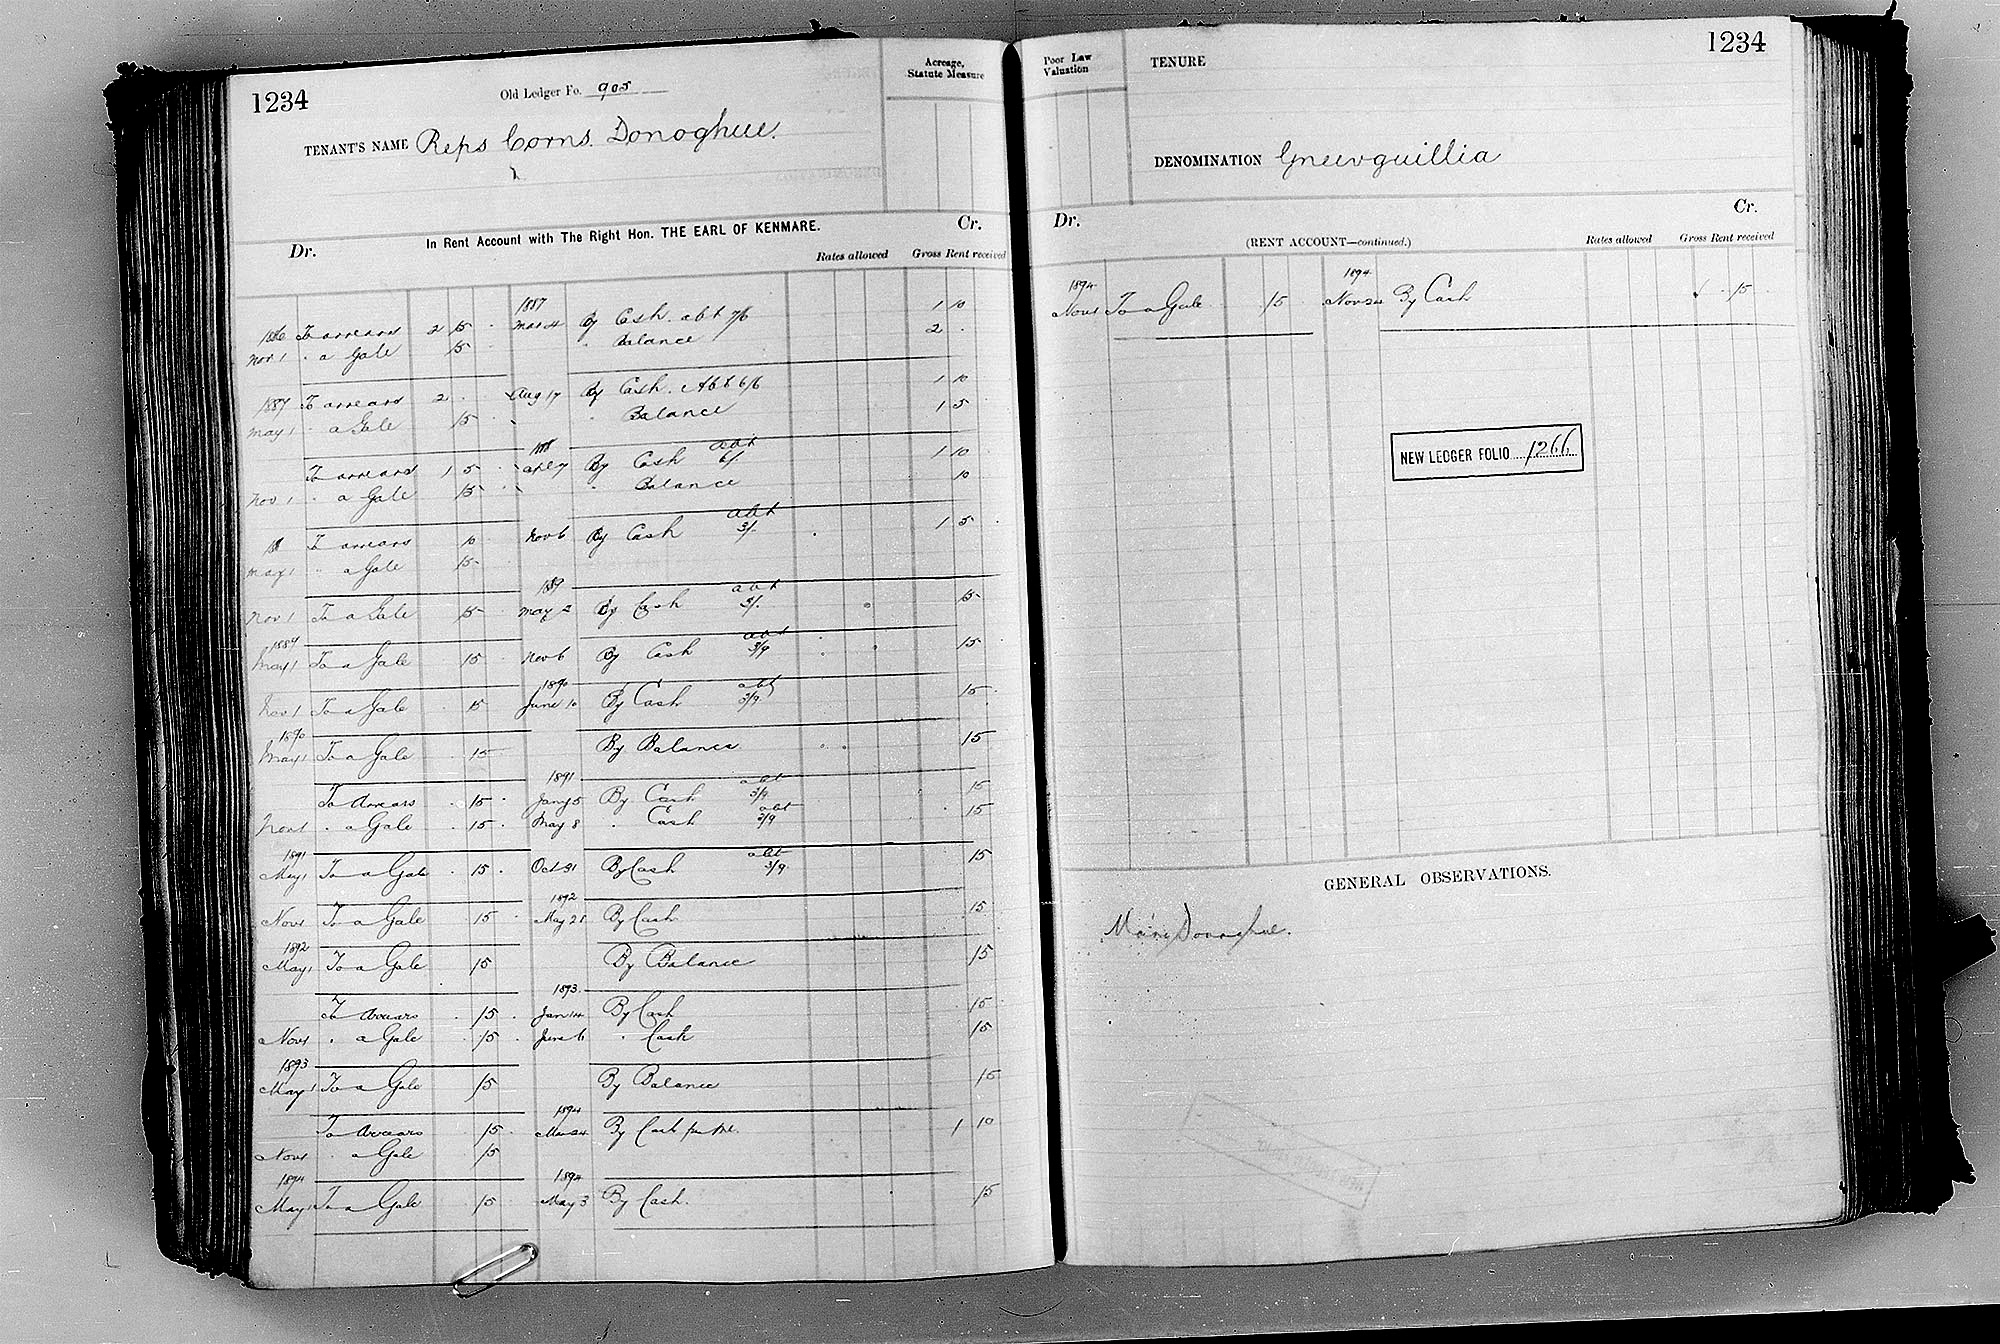 1234
Old Ledger Fo. 905
Acreage, Statute Measure
TENANT'S NAME Reps Corns. Donoghue.
In Rent Account with The Right Hon. THE EARL OF KENMARE.
Dr. Cr.
Rates allowed Gross Rent received
1887
1886 To arrears 2 15 Mar 4 By Cash. abt 7/6 1 10
Nov 1 " a Gale 15 " Balance 2
1887 To arrears 2 Aug 17 By Cash. Abt 6/6 1 10
May 1 " a Gale 15 " Balance 1 5
To arrears 1 5 By Cash abt 6/. 1 10
Nov 1 " a Gale 15 " Balance 10
To arrears 10 Nov 6 By Cash abt 3/. 1 5
May 1 " a Gale 15
1889
Nov 1 To a Gale 15 May 2 By Cash abt 15
1889
May 1 To a Gale 15 Nov 6 By Cash abt 3/9 15
1890
Nov 1 To a Gale 15 June 10 By Cash abt 3/9 15
1890
May 1 To a Gale 15 By Balance 15
1891
To Arrears 15 Jany 5 By Cash abt 3/9 15
Nov 1 " a Gale 15 May 8 " Cash abt 3/9 15
1891
May 1 To a Gale 15 Oct 31 By Cash abt 3/9 15
1892
Nov 1 To a Gale 15 May 25 By Cash 15
1892
May 1 To a Gale 15 By Balance 15
1893
To Arrears 15 Jan 14 By Cash 15
Nov 1 " a Gale 15 June 6 " Cash 15
1893
May 1 To a Gale 15 By Balance 15
1894
To Arrears 15 Mar 24 By Cash 1 10
Nov 1 " a Gale 15
1894 1894
May 1 To a Gale 15 May 3 By Cash. 15
1234
Poor Law Valuation
TENURE
DENOMINATION Gneevguillia
Dr. Cr.
(RENT ACCOUNT—continued.)
Rates allowed Gross Rent received
1894 1894
Nov 1 To a Gale 15 Nov 24 By Cash 15
NEW LEDGER FOLIO 1266
GENERAL OBSERVATIONS.
Mary Donoghue.